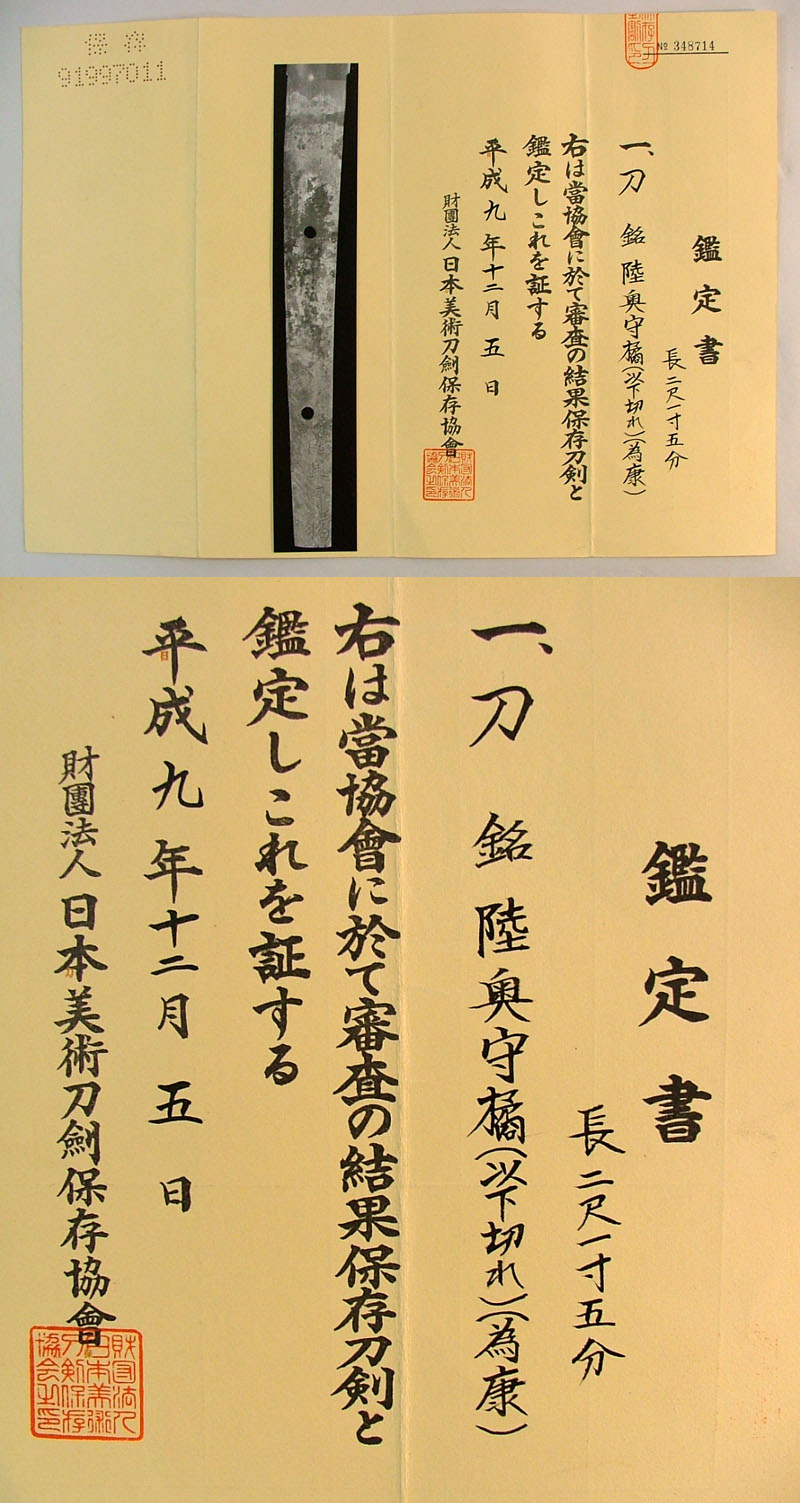 № 348714
鑑定書
長二尺一寸五分
一、刀 銘 陸奥守橘(以下切れ)(為康)
右は當協會に於て審査の結果保存刀剣と
鑑定しこれを証する
平成九年十二月五日
財團法人日本美術刀劍保存協會
財団法人
日本美術
刀剣保存
協会之印
保存
91997011
鑑定書
長二尺一寸五分
一、刀 銘 陸奥守橘(以下切れ)(為康)
右は當協會に於て審査の結果保存刀剣と
鑑定しこれを証する
平成九年十二月五日
財團法人日本美術刀劍保存協會
財団法人
日本美術
刀剣保存
協会之印